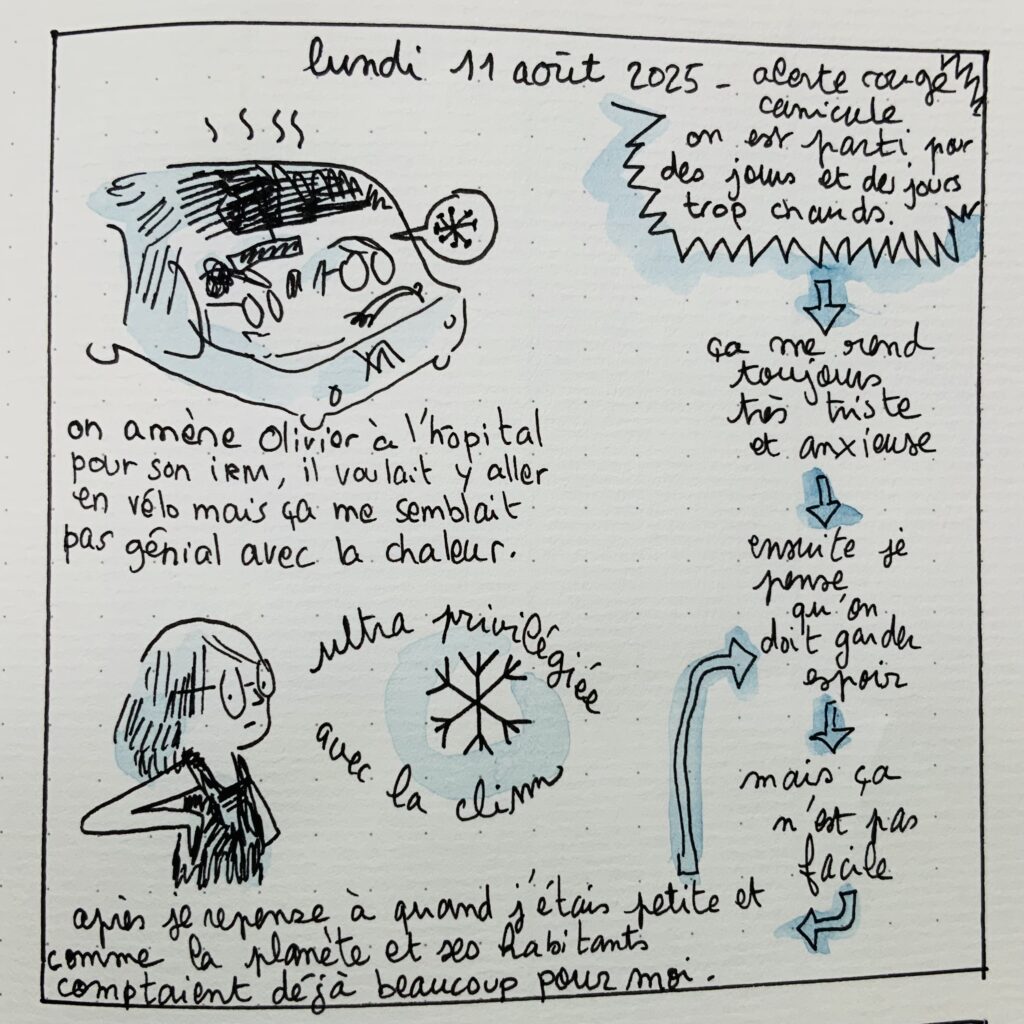 lundi 11 août 2025 - alerte rouge
canicule
on est parti pour
des jours et des jours
trop chauds.
on amène Olivier à l'hôpital
pour son IRM, il voulait y aller
en vélo mais ça me semblait
pas génial avec la chaleur.
ça me rend
toujours
très triste
et anxieuse
ensuite je
pense
qu'on
doit garder
espoir
mais ça
n'est pas
facile
ultra privilégiée
avec
la clim
après je repense à quand j'étais petite et
comme la planète et ses habitants
comptaient déjà beaucoup pour moi.